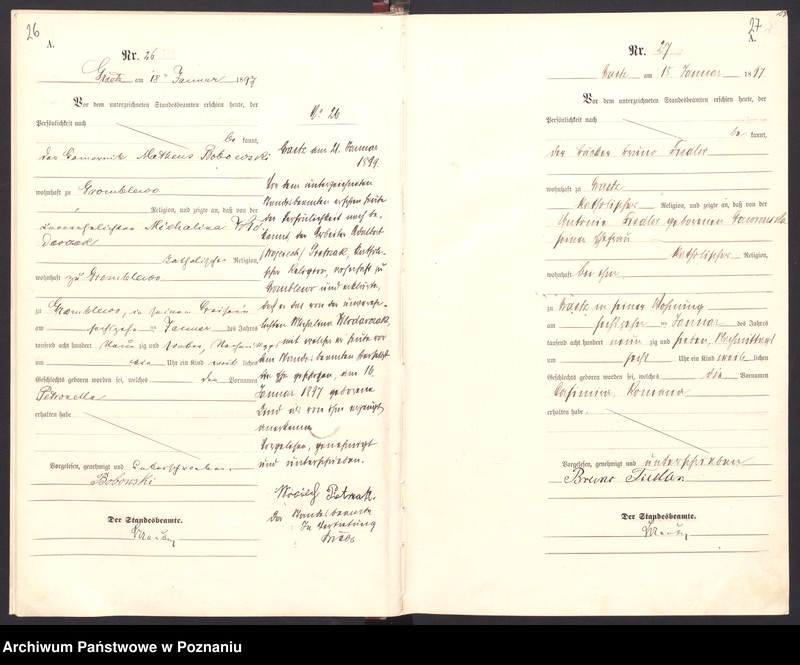 26
A.
Nr. 26
am 18 Januar 1897
Vor dem unterzeichneten Standesbeamten erschien heute, der
Persönlichkeit nach
be kannt,
der Matheus Bobowski
wohnhaft zu Gromblewo
Religion, und zeigte an, daß von der
unverehelichten Michalina
katholischer Religion,
wohnhaft zu Gromblewo
zu Gromblewo, in
am sechzehn ten Januar des Jahres
tausend acht hundert neun zig und sieben, Nachmittags
um ein Uhr ein Kind weib lichen
Geschlechts geboren worden sei, welches den Vornamen
Petronella
erhalten habe
Vorgelesen, genehmigt und unterschrieben
Bobowski
Der Standesbeamte.
No 26
am 21. Januar
1899.
Vor dem unterzeichneten
Standesbeamten erschien heute
der Persönlichkeit nach be-
kannt, der Arbeiter Adalbert
Pietrzak, katholi-
scher Religion, wohnhaft zu
Gromblewo und erklärte,
daß er das von der unverehe-
lichten Michalina Wlodarczak,
mit welcher er heute vor
dem Standesbeamten
die Ehe geschlossen, am 16.
Januar 1897 geborene
Kind als von ihm erzeugt
anerkenne
Vorgelesen, genehmigt
und unterschrieben.
Pietrzak
Der Standesbeamte
In Vertretung
27
A.
Nr. 27
am 18 Januar 1897
Vor dem unterzeichneten Standesbeamten erschien heute, der
Persönlichkeit nach
be kannt,
der Bäcker Bruno Fiedler
wohnhaft zu
katholischer Religion, und zeigte an, daß von der
Antonie Fiedler geborenen
seiner Ehefrau
katholischer Religion,
wohnhaft bei ihm
zu in seiner Wohnung
am sechszehn ten Januar des Jahres
tausend acht hundert neun zig und sieben, Nachmittags
um sechs Uhr ein Kind weib lichen
Geschlechts geboren worden sei, welches die Vornamen
Casimira, Romana
erhalten habe.
Vorgelesen, genehmigt und unterschrieben
Bruno Fiedler
Der Standesbeamte.
Archiwum Państwowe w Poznaniu